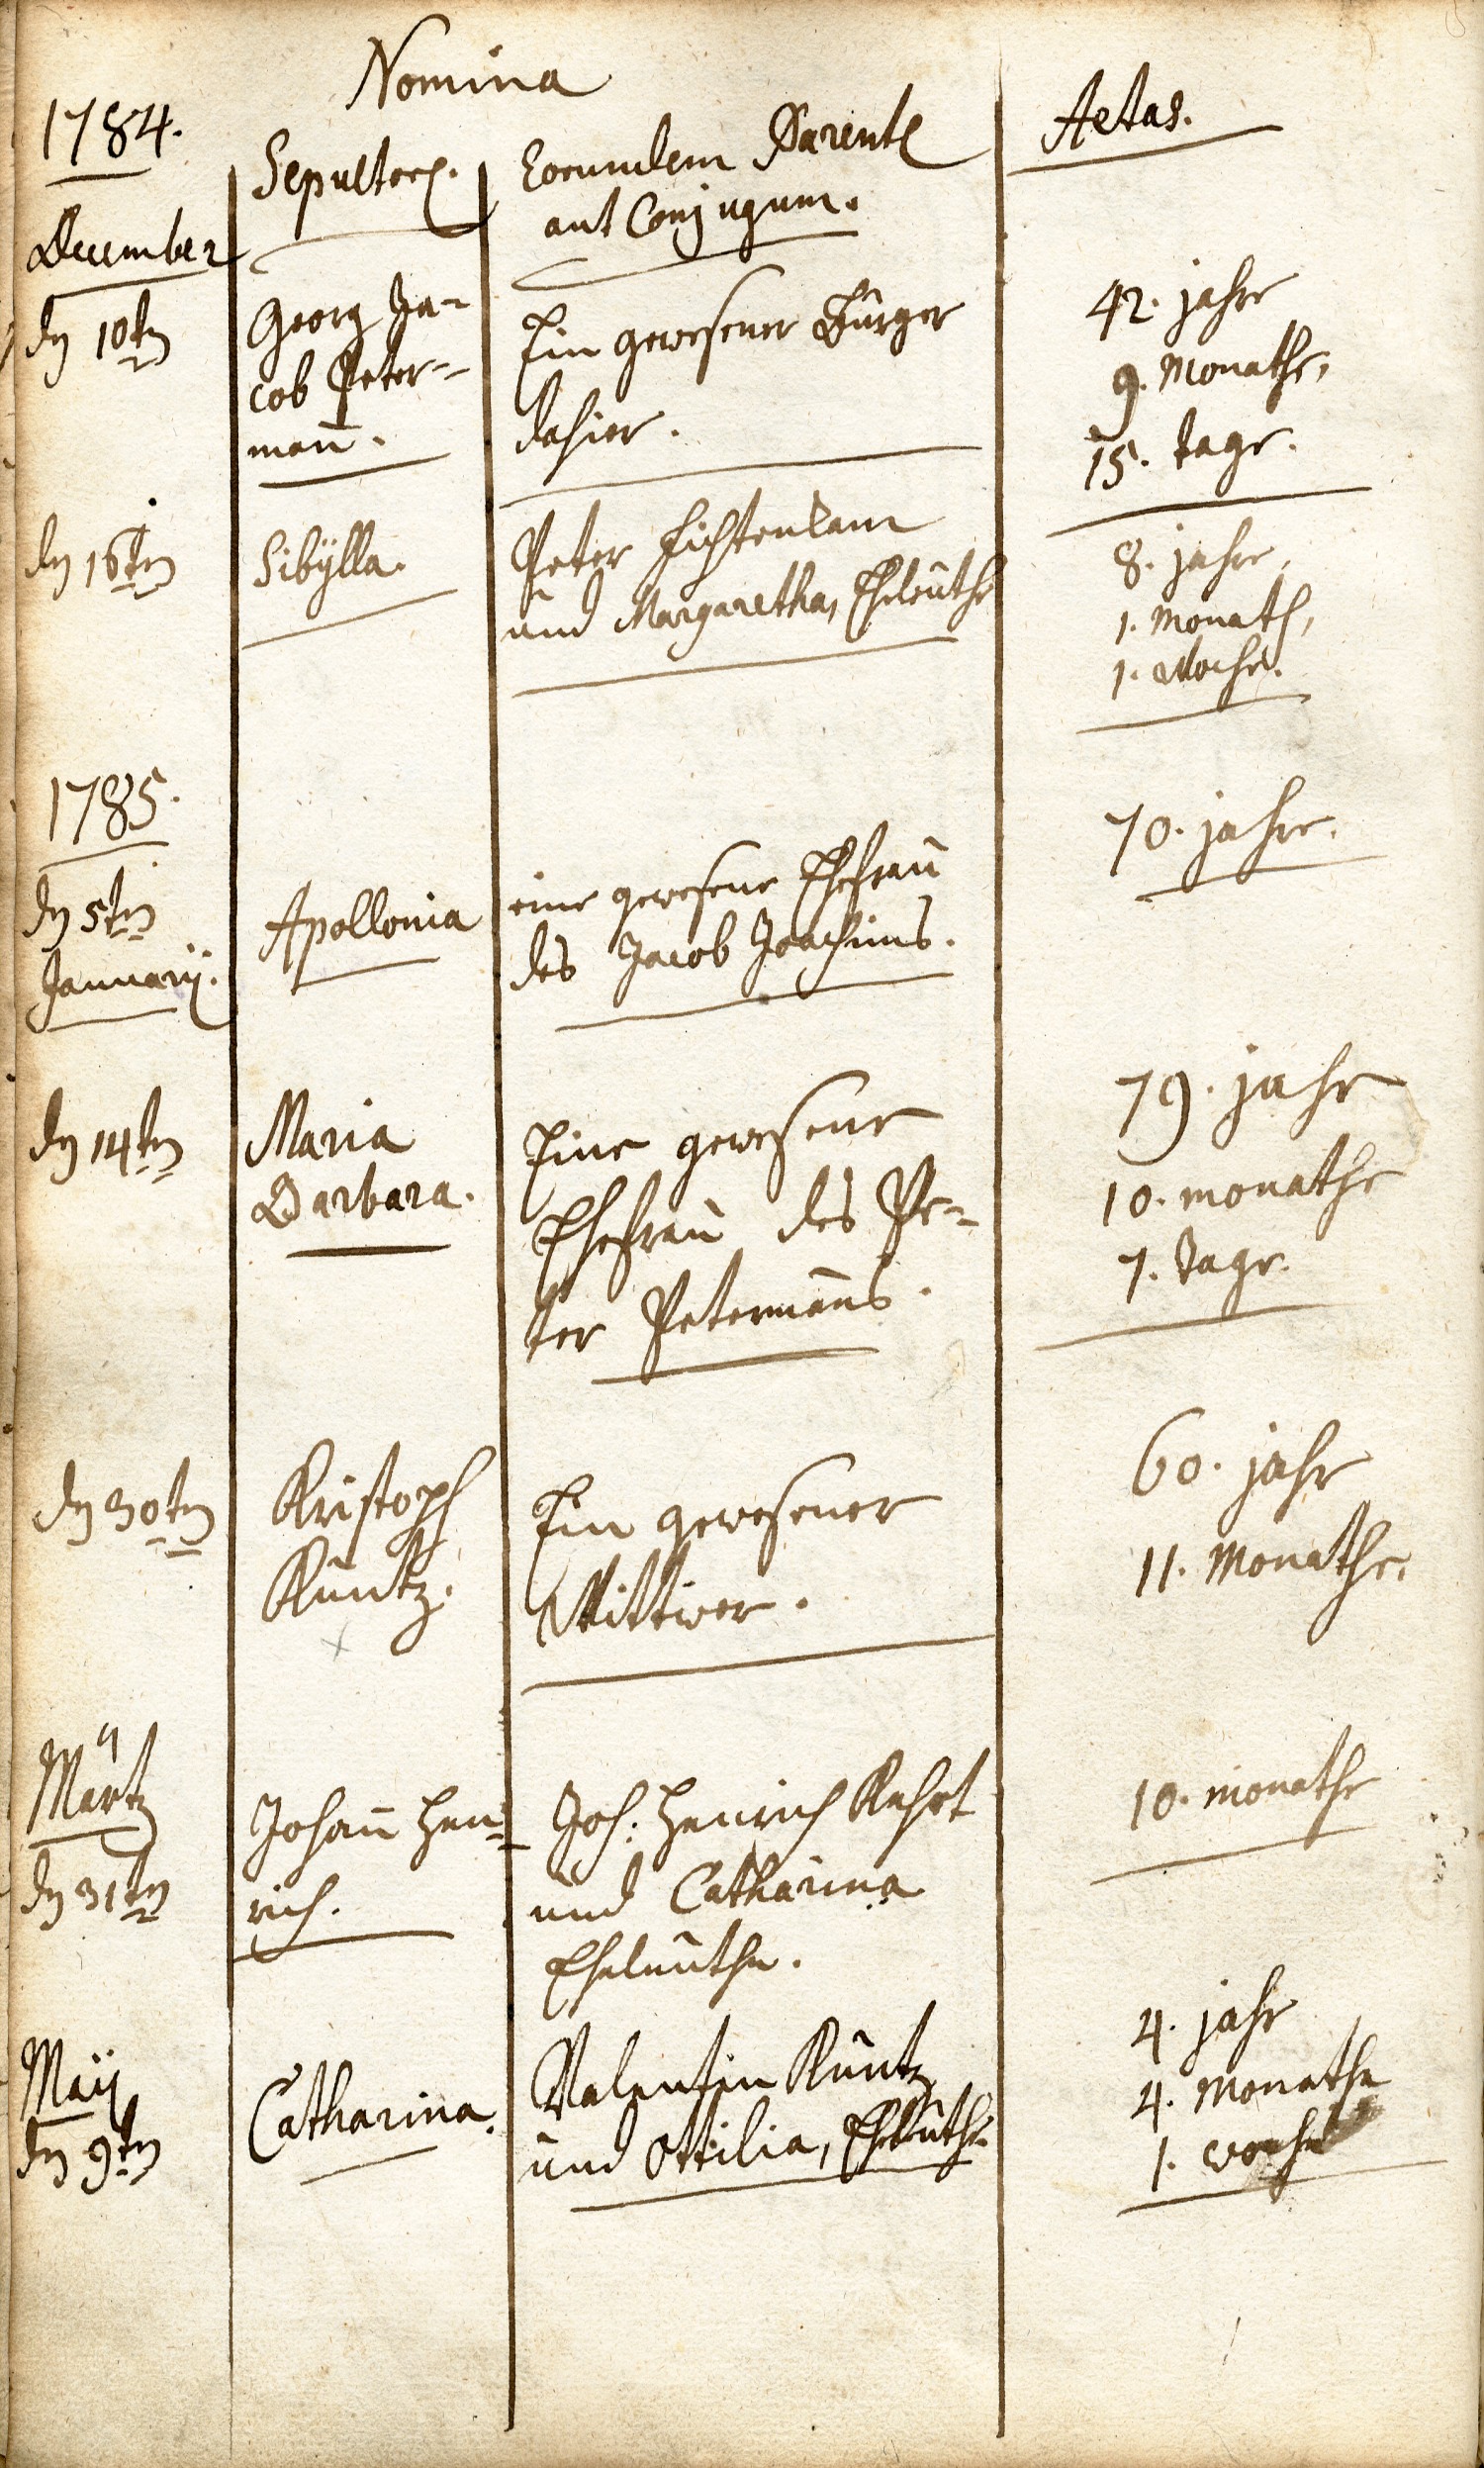 Nomina
1784.
Sepultor.
Eorundem Parent
aut Conjugum.
Aetas.
December
den 10ten
Georg Ja-
cob Peter-
man̄.
Ein gewesener Bürger
dahier.
42. jahre
9. Monathe,
15. tage.
den 16ten
Sibÿlla.
Peter
und Margaretha, Eheleuthe
8. jahre,
1. Monath,
1. Woche.
1785.
den 5ten
Januarij.
Apollonia
eine gewesene Ehefrau
des Jacob Joachims.
70. jahre.
den 14ten
Maria
Barbara.
Eine gewesene
Ehefrau des Pe-
ter Peterman̄s.
79. jahr
10. monathe
7. tage.
den 30ten
Kristoph
Kuntz.
Ein gewesener
Wittwer.
60. jahr
11. Monathe.
Märtz
den 31ten
Johan̄ Hen-
rich.
Joh: Henrich Kehrt
und Catharina
Eheleuthe.
10. monathe
Maij
den 9ten
Catharina.
Valentin Kuntz
und Ottilia, Eheleuthe.
4. jahr
4. Monathe
1. woche